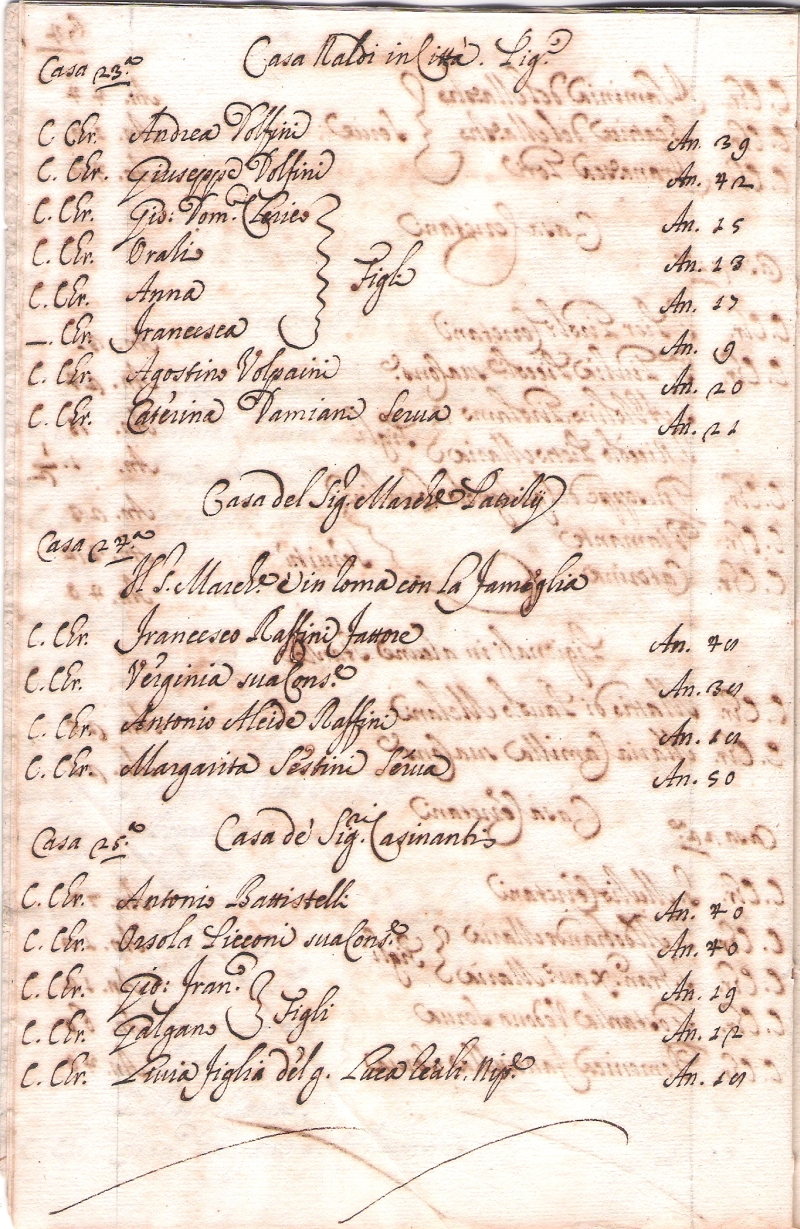 Casa 23.a Casa Naldi in Città. Pig.e
C. Chr. Andrea Dolfini An. 39
C. Chr. Giuseppe Dolfini An. 42
C. Chr. Gio: Dom.co Clerico An. 15
C. Chr. Orali An. 13
Figli
C. Chr. Anna An. 17
_. Chr. Francesca An. 9
C. Chr. Agostino Volpaini An. 20
C. Chr. Caterina Damiani Serua An. 21
Casa del Sig. March.e
Casa 24.a
Il S. March.e è in Roma con la Fameglia
C. Chr. Francesco Raffini Fattore An.
C. Chr. Verginia sua Cons.e An.
C. Chr. Antonio Alcide Raffini An.
C. Chr. Margarita Sestini Serua An. 50
Casa 25.a Casa de Sig.ri Casinanti
C. Chr. Antonio Battistelli An. 40
C. Chr. Orsola Picconi sua Cons.e An. 40
C. Chr. Gio: Fran.co An. 19
Figli
C. Chr. Galgano An. 12
C. Chr. Liuia figlia del q. Luca Nip.e An.